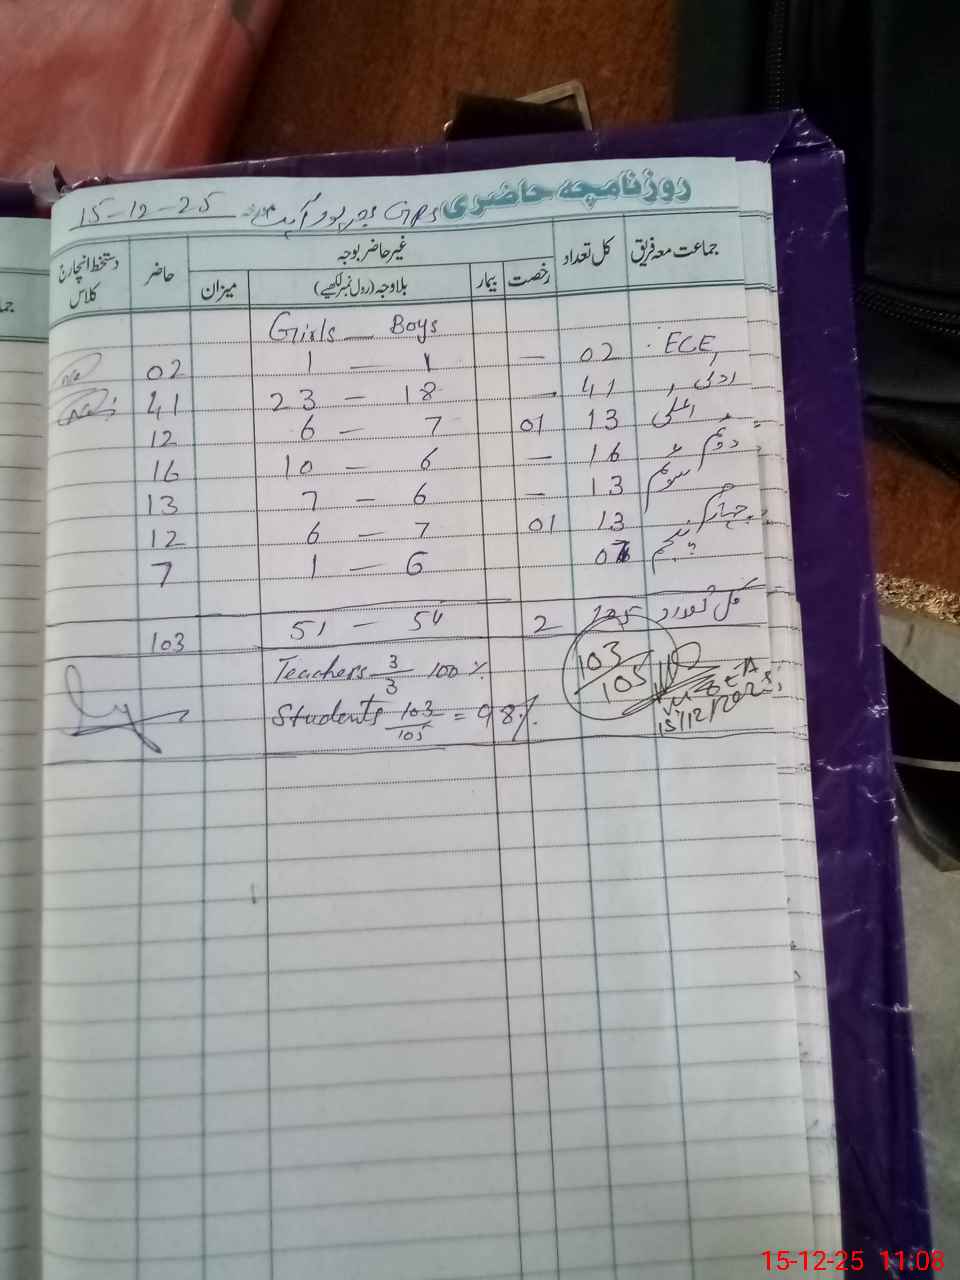 روزنامچہ حاضری GPS مورخہ 15-12-25
جماعت معہ فریق کل تعداد غیر حاضر بوجہ حاضر دستخط انچارج کلاس
رخصت بیمار بلاوجہ (رول نمبر لکھیے) میزان
Girls — Boys
ECE 02 — 1 — 1 02
ادنیٰ 41 - 18 — 23 41
اعلیٰ 13 01 7 — 6 12
دوئم 16 — 6 — 10 16
سوئم 13 — 6 — 7 13
چہارم 13 01 7 — 6 12
پنجم 07 6 — 1 7
کل تعداد 105 2 54 — 51 103
Teachers 3/3 100%
103/105
Students 103/105 = 98%
15/12/2025
15-12-25 11:08